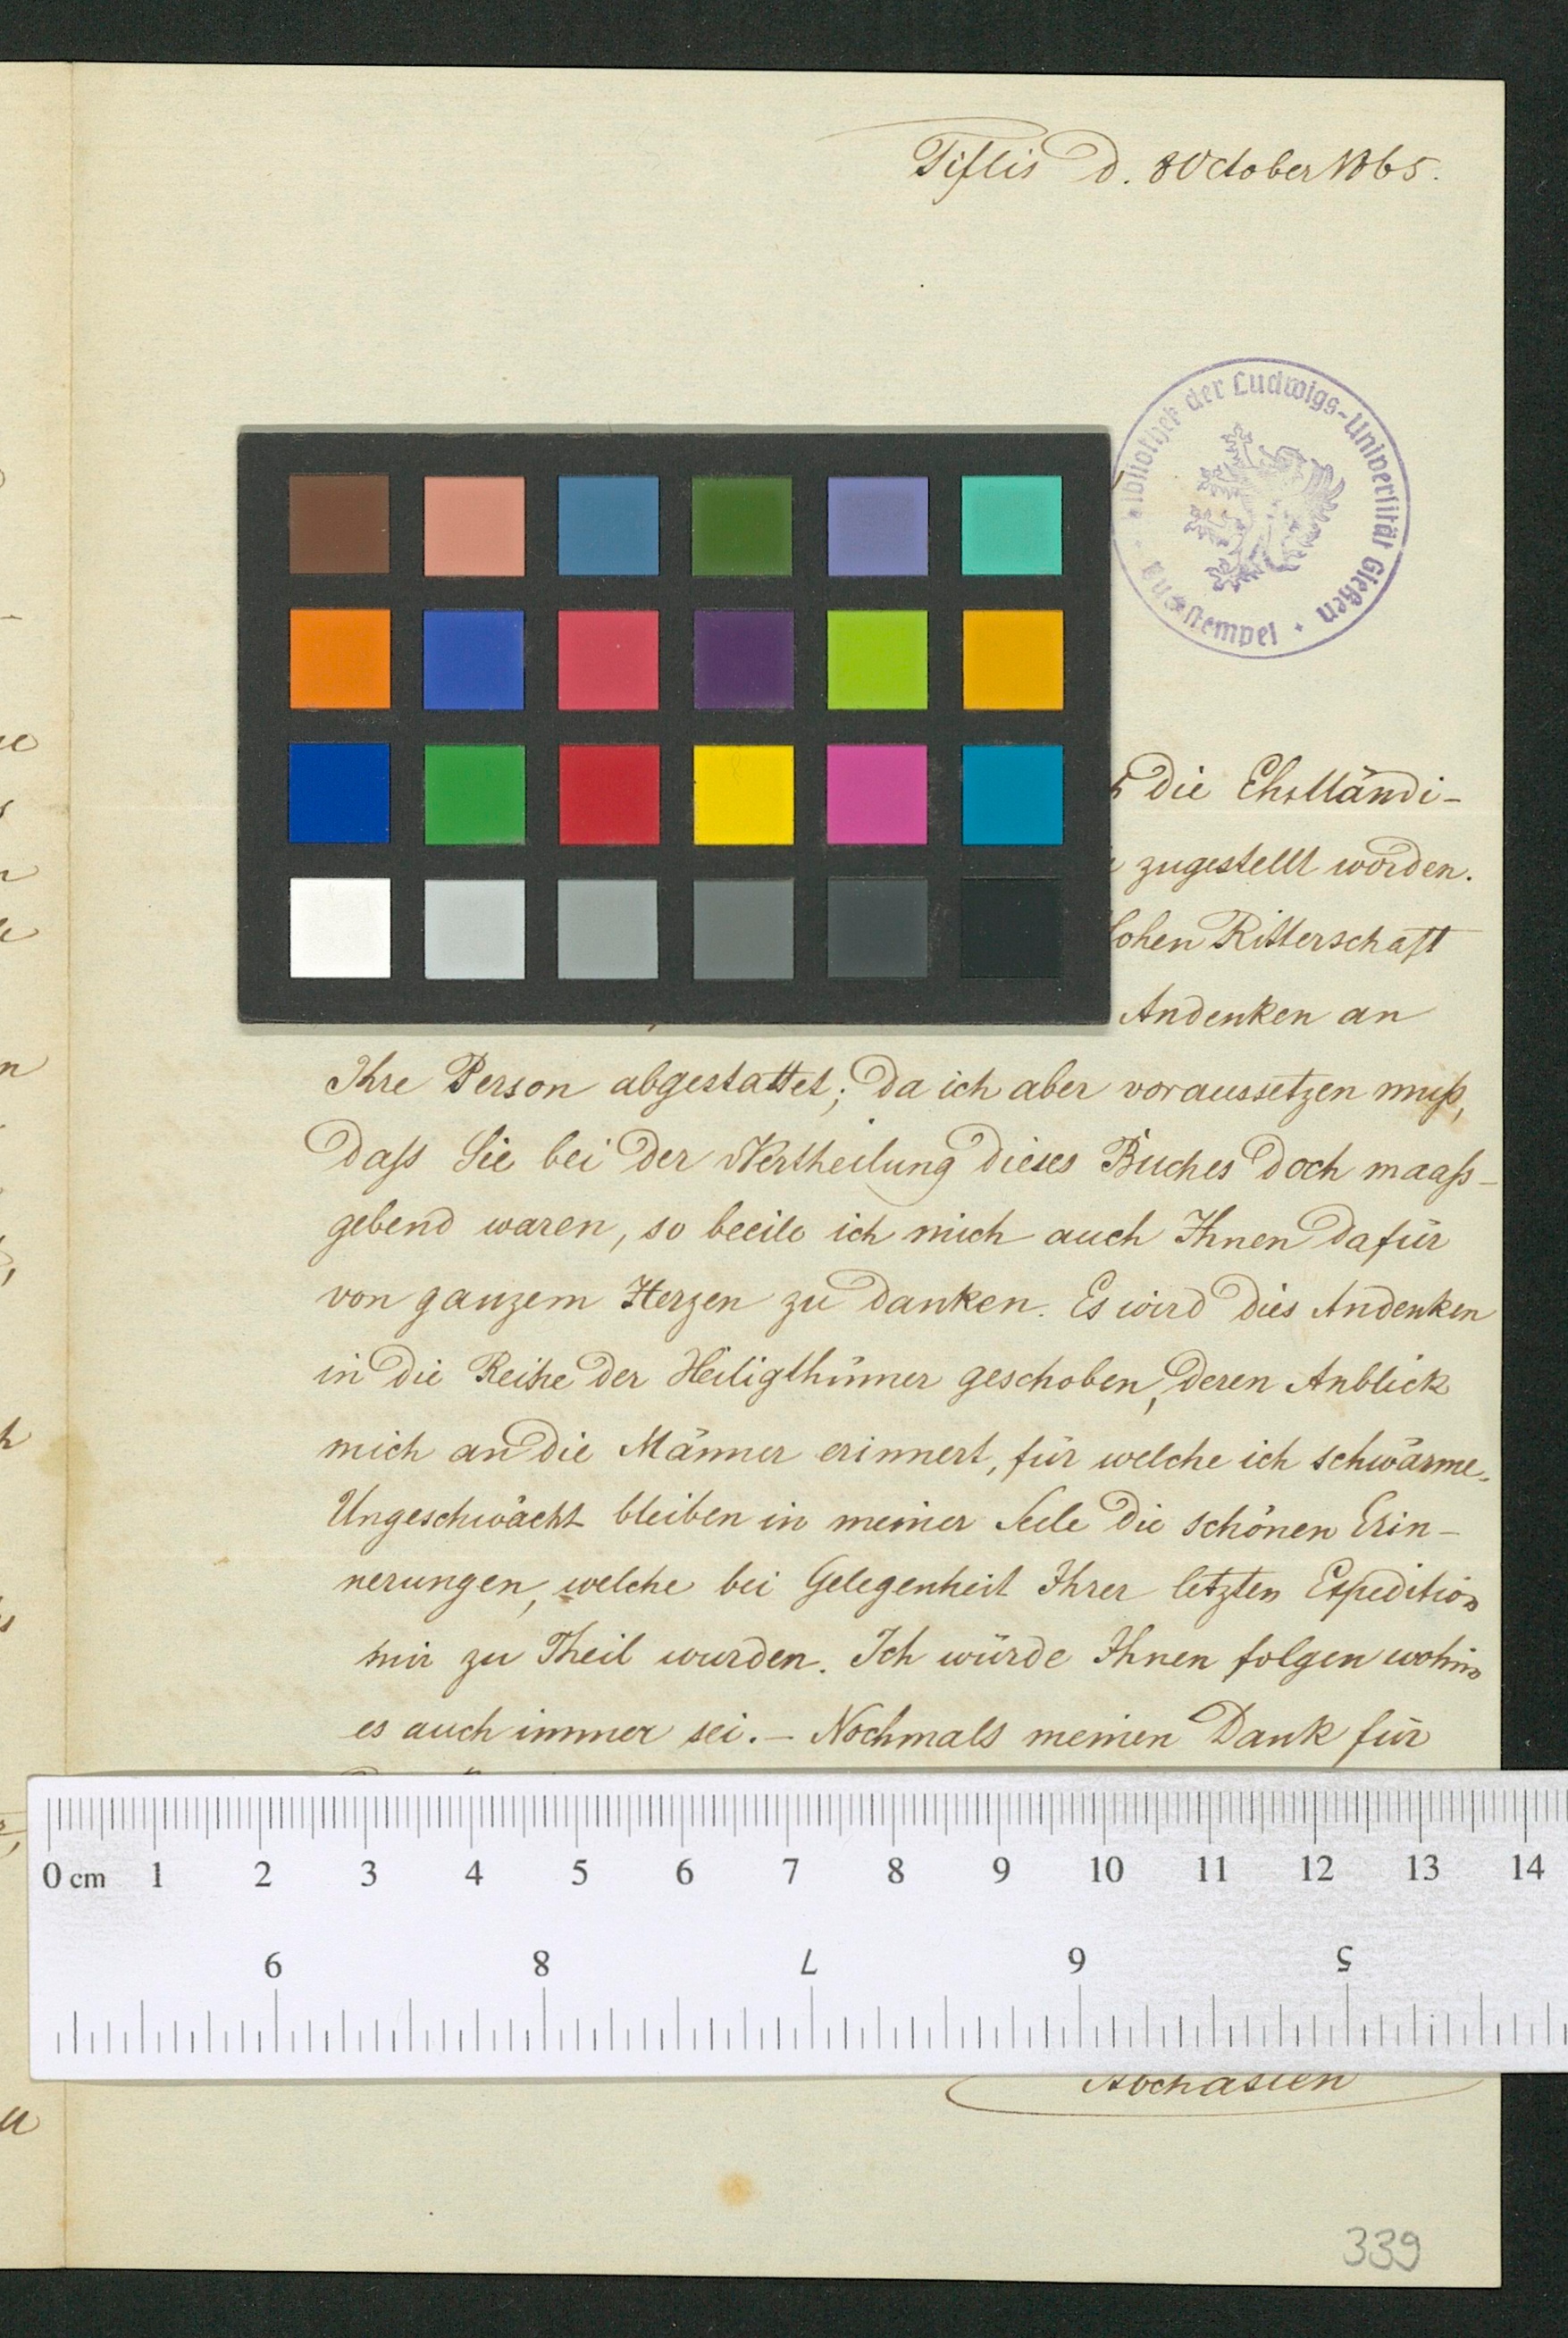 Tiflis d. 8 October 1865.
Bibliothek der Ludwigs-Universität Gießen
die Ehstländi-
zugestellt worden.
hohen Ritterschaft
Andenken an
Ihre Person abgestattet; da ich aber voraussetzen muß,
daß Sie bei der Vertheilung dieses Buches doch maaß-
gebend waren, so beeile ich mich auch Ihnen dafür
von ganzem Herzen zu danken. Es wird dies Andenken
in die Reihe der Heiligthümer geschoben, deren Anblick
mich an die Männer erinnert, für welche ich schwärme.
Ungeschwächt bleiben in meiner Seele die schönen Erin-
nerungen, welche bei Gelegenheit Ihrer letzten Expedition
mir zu Theil wurden. Ich würde Ihnen folgen wohin
es auch immer sei. – Nochmals meinen Dank für
0 cm 1 2 3 4 5 6 7 8 9 10 11 12 13 14
9 8 7 6 5
Abchasien
339